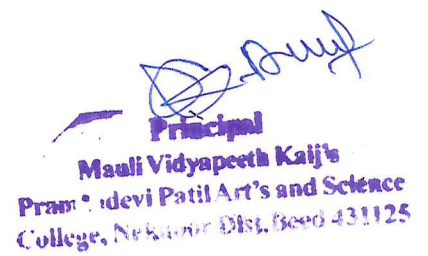 Principal
Mauli Vidyapeeth Kaij's
Patil Art's and Science
College, Dist. Beed 431125